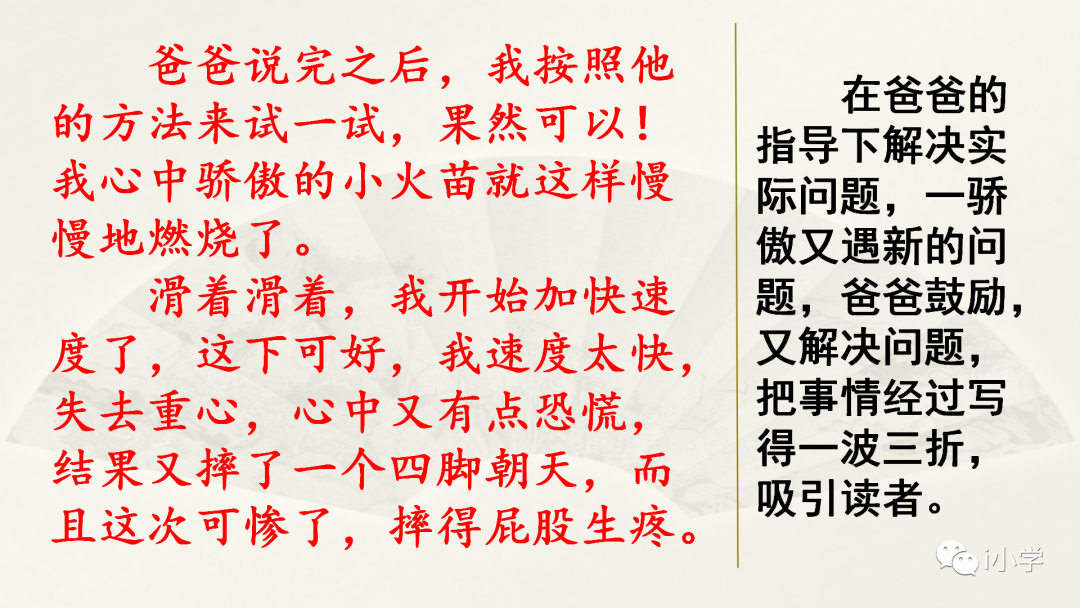 爸爸说完之后，我按照他
的方法来试一试，果然可以！
我心中骄傲的小火苗就这样慢
慢地燃烧了。
滑着滑着，我开始加快速
度了，这下可好，我速度太快，
失去重心，心中又有点恐慌，
结果又摔了一个四脚朝天，而
且这次可惨了，摔得屁股生疼。
在爸爸的
指导下解决实
际问题，一骄
傲又遇新的问
题，爸爸鼓励，
又解决问题，
把事情经过写
得一波三折，
吸引读者。
i小学